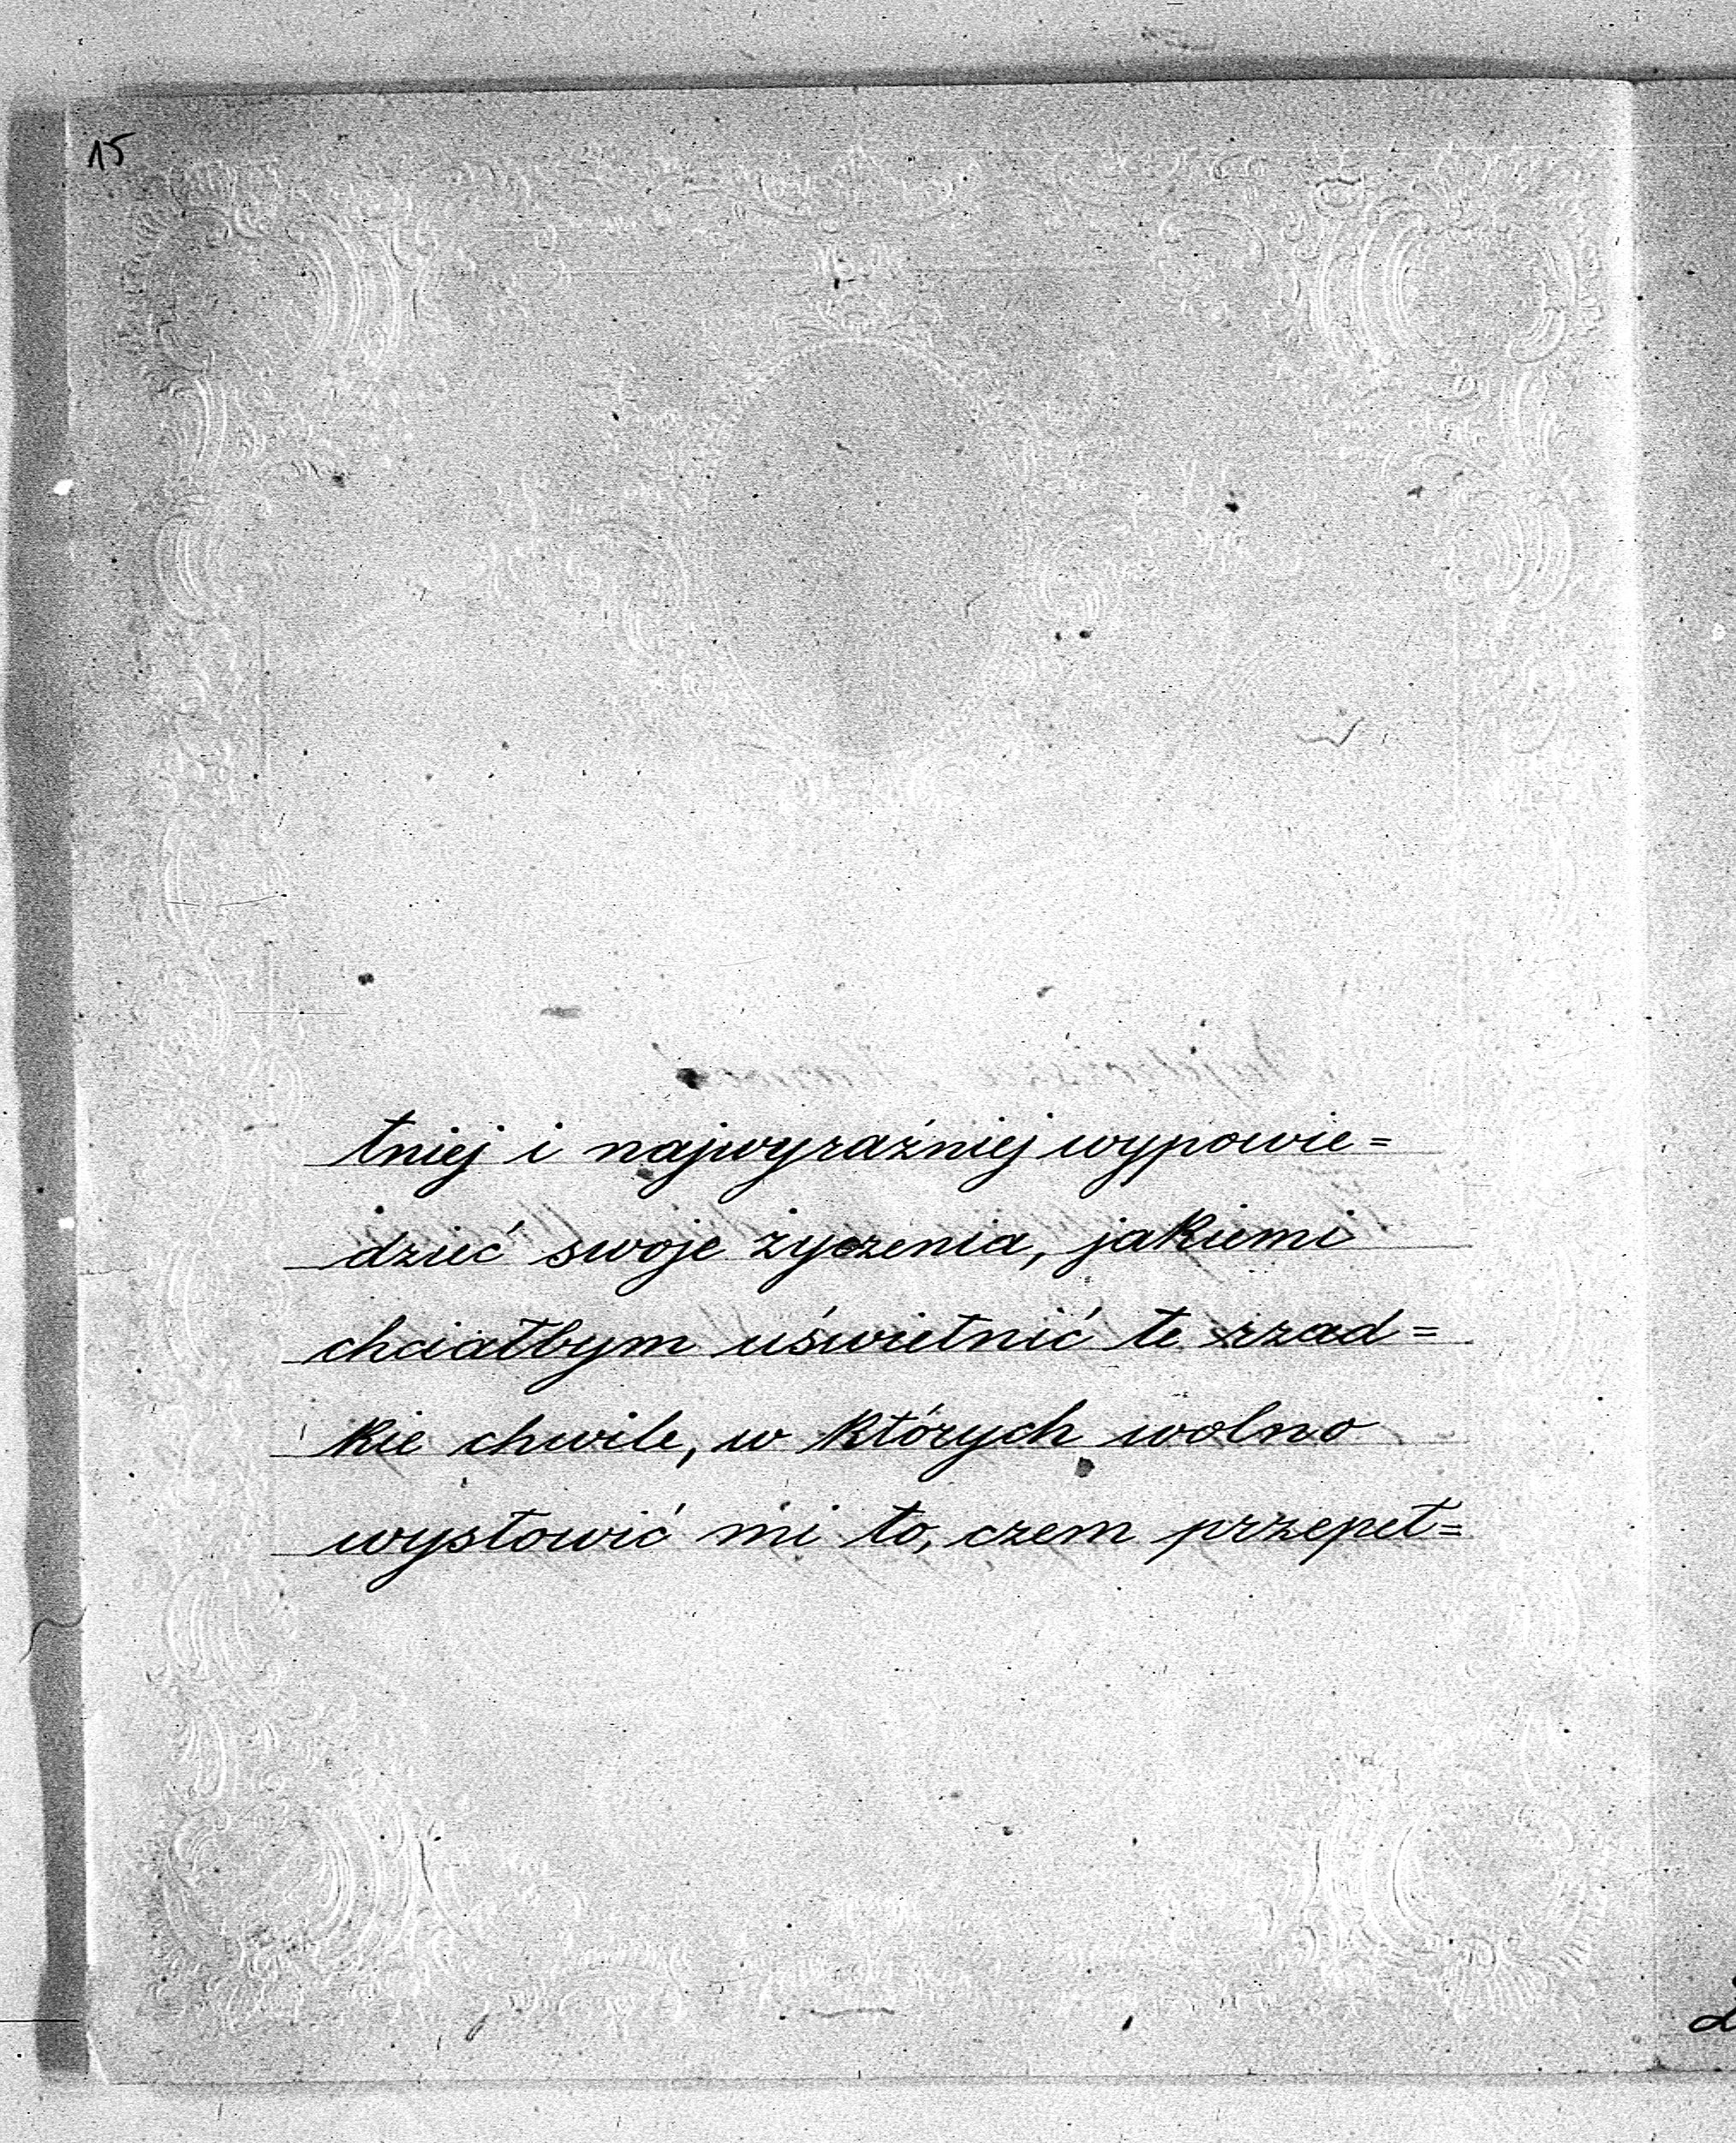 15
tniej i najwyraźniej wypowie=
dzieć swoje życzenia, jakiemi
chciałbym uświetnić te rzad=
kie chwile, w których wolno
wysłowić mi to, czem przepeł=